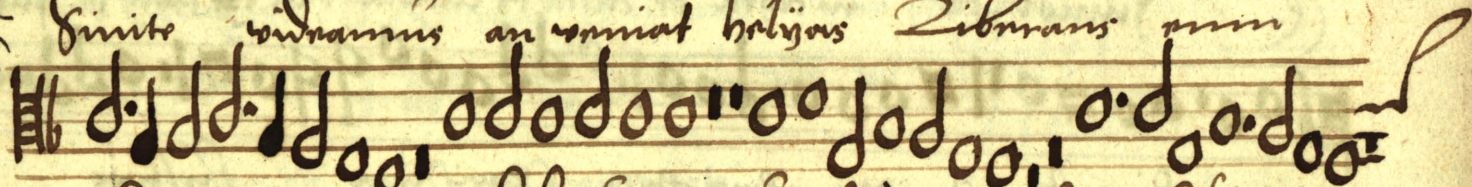 Sinite videamus an veniat helyas Liberans eum